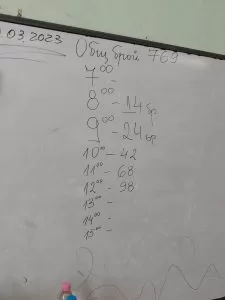 .03.2023
Общ брой 769
7⁰⁰ -
8⁰⁰ - 14 бр
9⁰⁰ - 24 бр
10⁰⁰ - 42
11⁰⁰ - 68
12⁰⁰ - 98
13⁰⁰ -
14⁰⁰ -
15⁰⁰ -